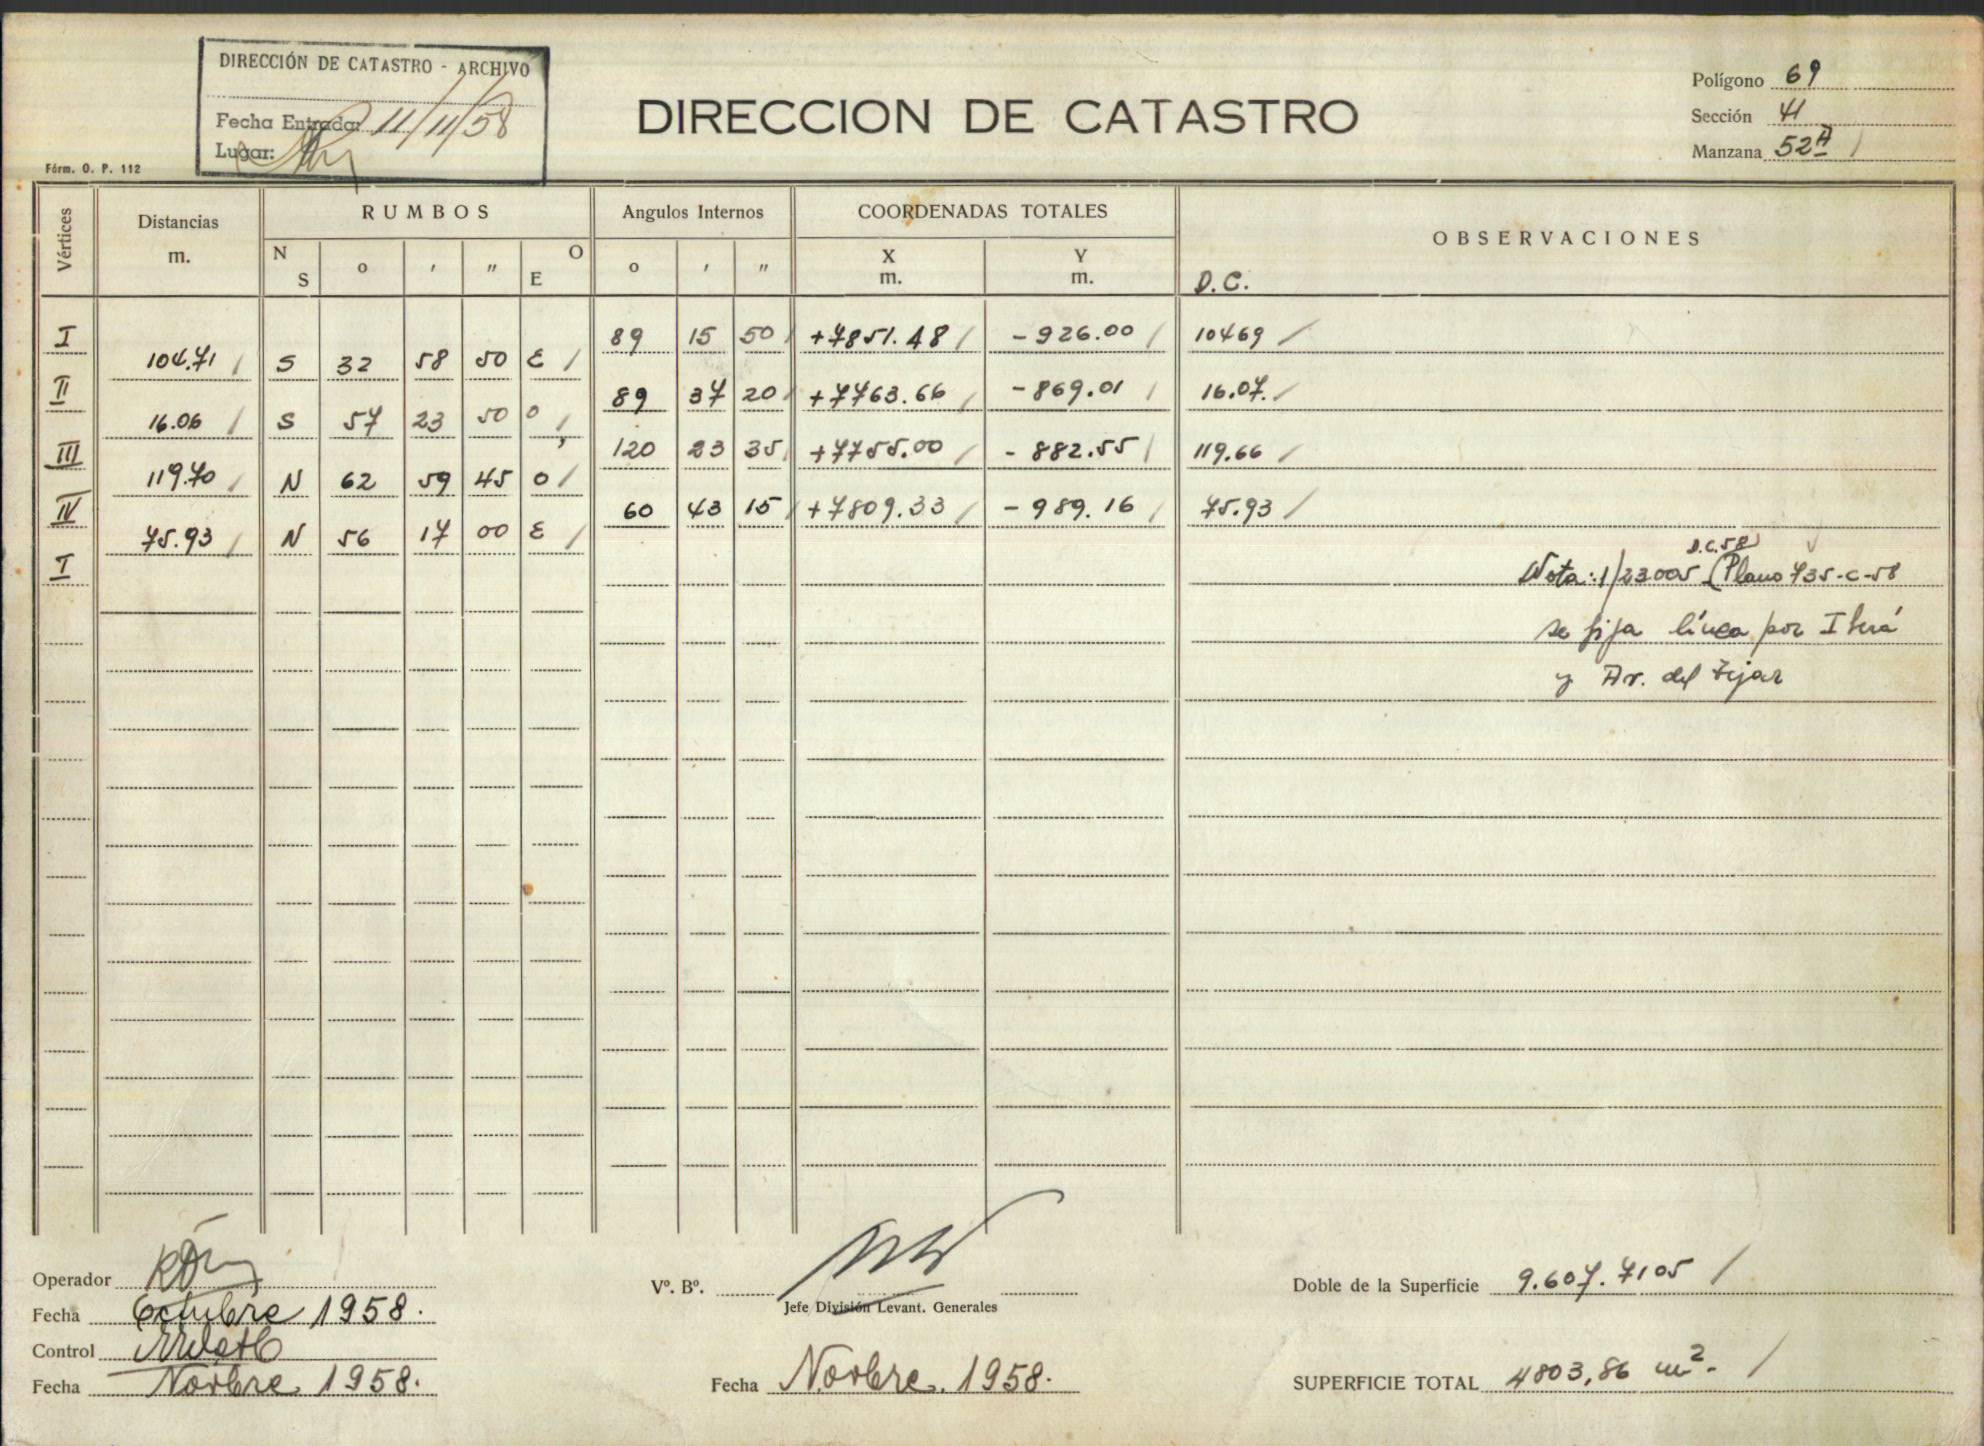 DIRECCIÓN DE CATASTRO - ARCHIVO
Fecha Entrada: 11/11/58
Lugar:
Fórm. O. P. 112
DIRECCION DE CATASTRO
Polígono 69
Sección 41
Manzana 52A
Vértices
Distancias
m.
RUMBOS
N S
o
'
"
O E
Angulos Internos
o
'
"
COORDENADAS TOTALES
X
m.
Y
m.
OBSERVACIONES
D.C.
I 89 15 50 +7851.48 -926.00 10469
104.71 S 32 58 50 E
II 89 37 20 +7763.66 -869.01 16.07.
16.06 S 57 23 50 O
III 120 23 35 +7755.00 -882.55 119.66
119.70 N 62 59 45 O
IV 60 43 15 +7809.33 -989.16 75.93
75.93 N 56 17 00 E
I
D.C.58
Nota: 1/23005 (Plano 735-C-58
se fija línea por Iberá
y Av. del Tejar
Operador
Fecha Octubre 1958.
Control
Fecha Novbre 1958.
Vº. Bº.
Jefe División Levant. Generales
Fecha Novbre. 1958.
Doble de la Superficie 9.607.7105
SUPERFICIE TOTAL 4803,86 m2.